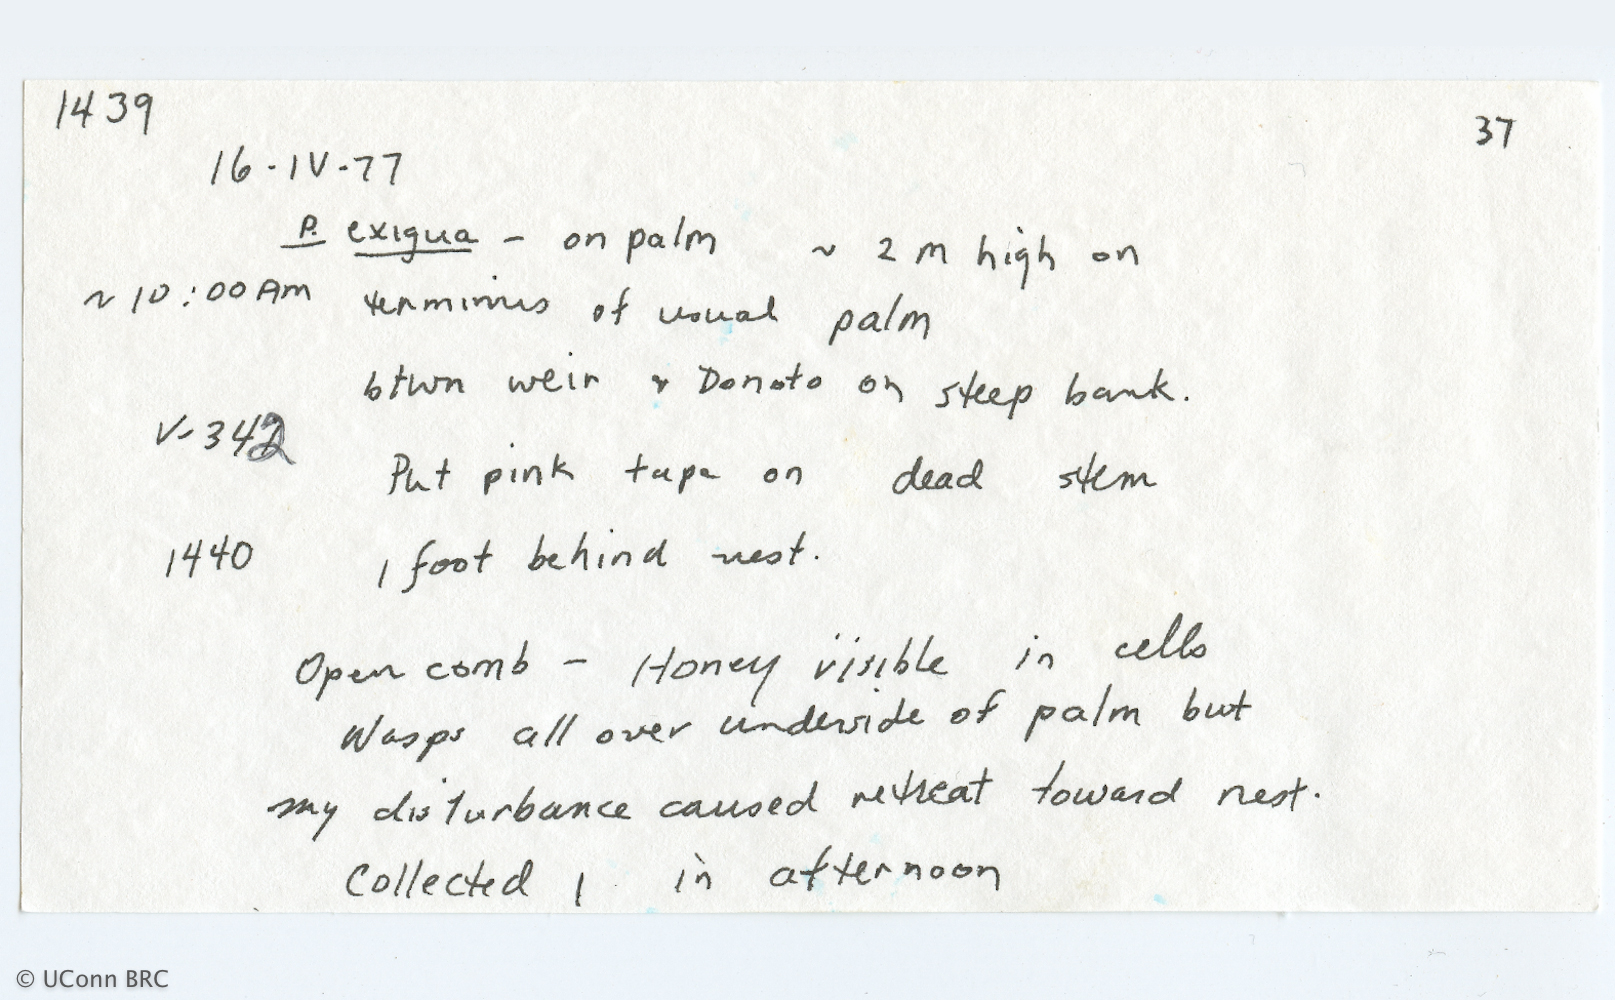 1439
37
16-IV-77
P. exigua - on palm ~ 2 m high on
~ 10:00 Am terminus of usual palm
btwn weir & Donato on steep bank.
V-342
Put pink tape on dead stem
1440 1 foot behind nest.
Open comb - Honey visible in cells
Wasps all over underside of palm but
my disturbance caused retreat toward nest.
Collected 1 in afternoon
© UConn BRC